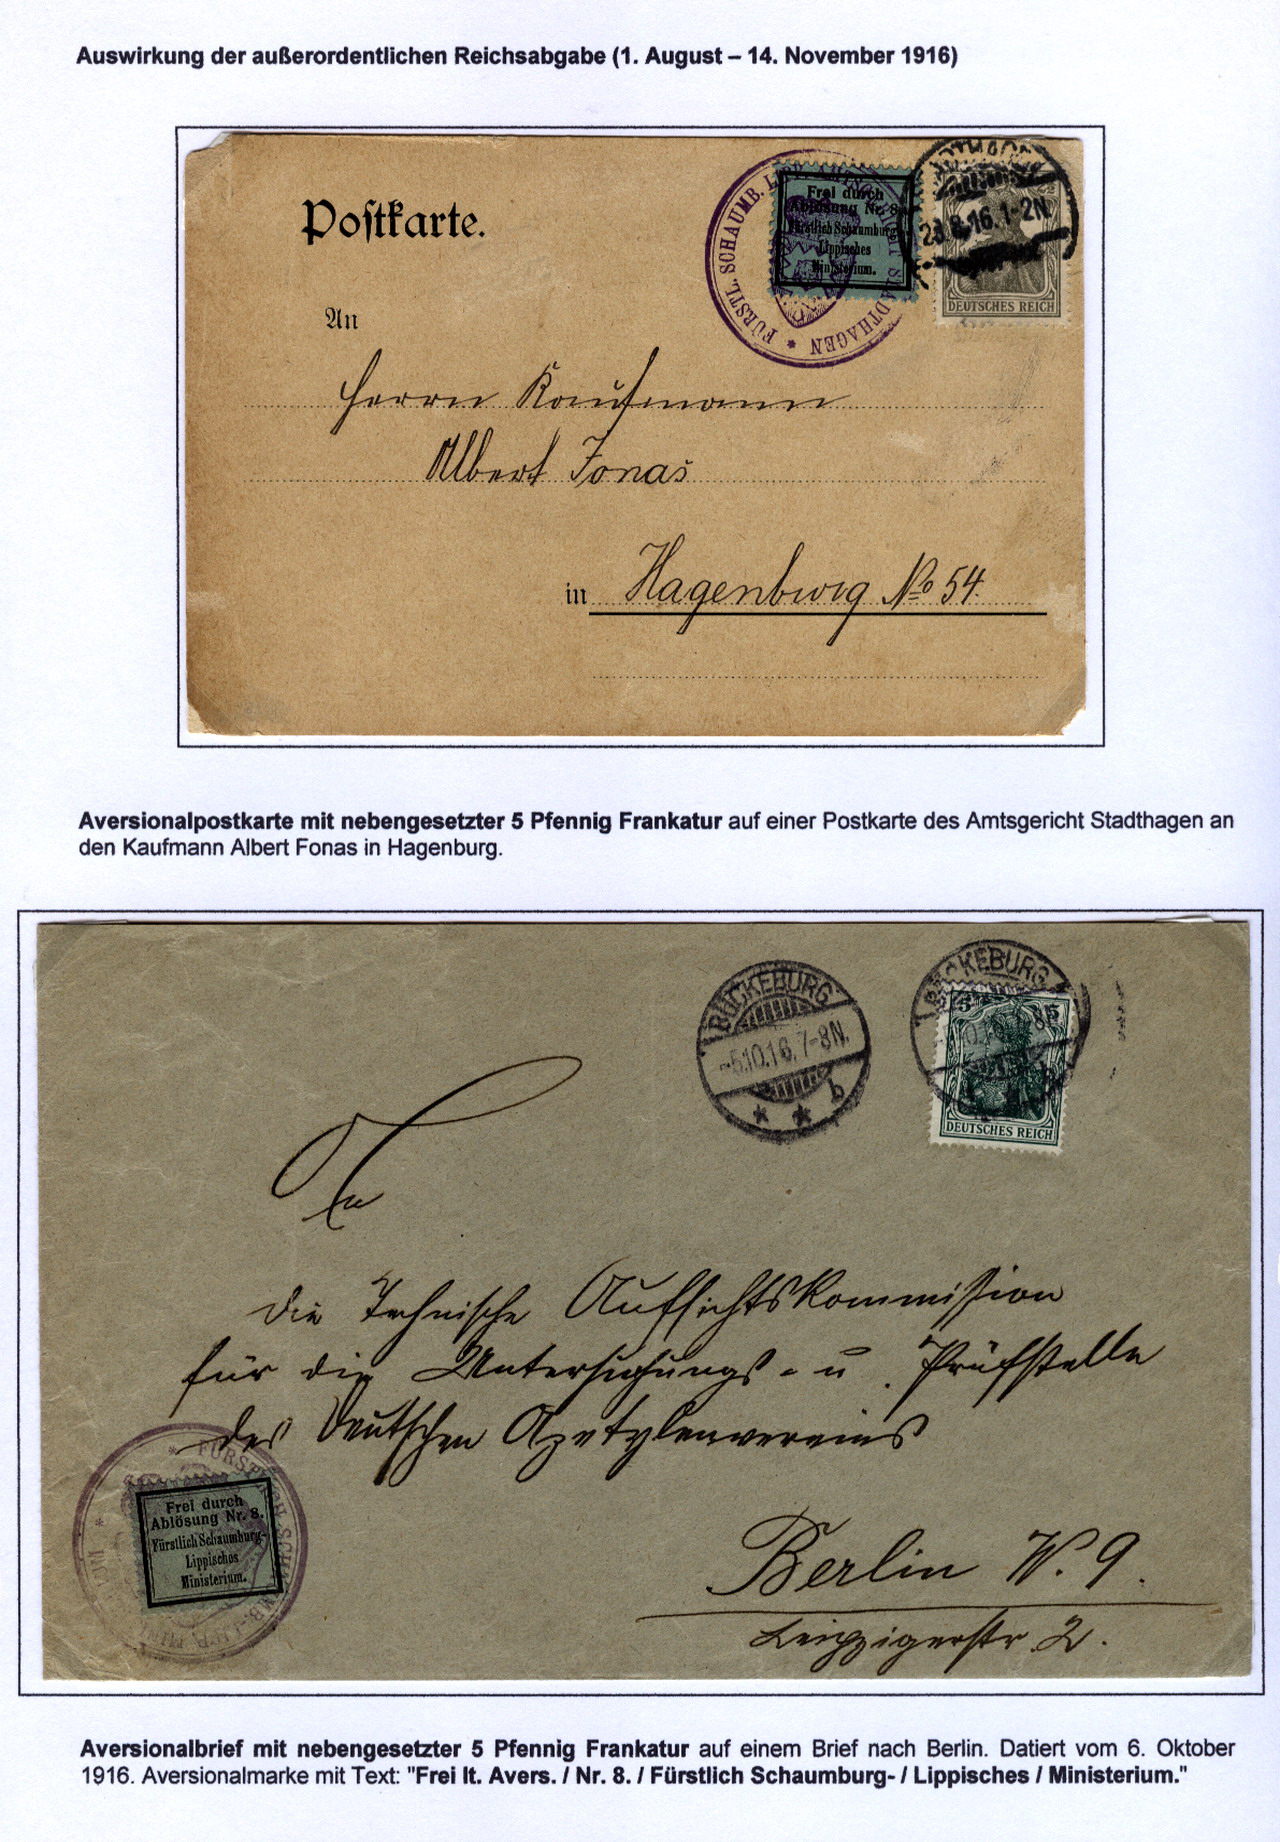 Auswirkung der außerordentlichen Reichsabgabe (1. August – 14. November 1916)
Postkarte.
FÜRSTL. SCHAUMB. LIPP. AMTSGERICHT STADTHAGEN *
Frei durch
Ablösung Nr. 8.
Fürstlich Schaumburg-
Lippisches
Ministerium.
8.16.1-2N.
DEUTSCHES REICH
An
Herrn Kaufmann
Albert Jonas
in Hagenburg No 54.
Aversionalpostkarte mit nebengesetzter 5 Pfennig Frankatur auf einer Postkarte des Amtsgericht Stadthagen an
den Kaufmann Albert Fonas in Hagenburg.
BÜCKEBURG
-6.10.16.7-8N.
* * b
BÜCKEBURG
5 5
DEUTSCHES REICH
An
die Technische Aufsichtskommission
für die Untersuchungs- u. Prüfstelle
des Deutschen Azetylenvereins
Berlin W. 9.
Leipzigerstr. 2.
Frei durch
Ablösung Nr. 8.
Fürstlich Schaumburg-
Lippisches
Ministerium.
Aversionalbrief mit nebengesetzter 5 Pfennig Frankatur auf einem Brief nach Berlin. Datiert vom 6. Oktober
1916. Aversionalmarke mit Text: "Frei lt. Avers. / Nr. 8. / Fürstlich Schaumburg- / Lippisches / Ministerium."